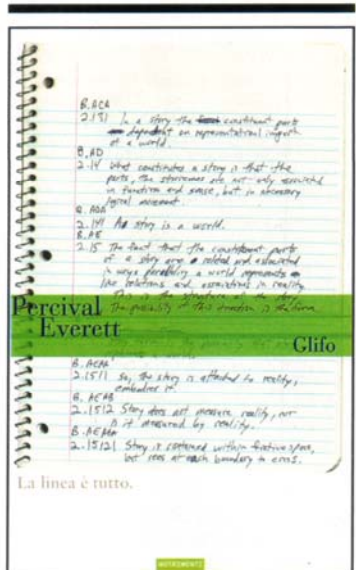 B.ACA
2.131 In a story the constituent parts
dependent on representational
of a world.
B.AD
2.14 What constitutes a story is that the
parts, the structures are not only associated
in function and sense, but in necessary
logical movement.
B.ADA
2.141 A story is a world.
B.AE
2.15 The fact that the constituent parts
of a story are related and associated
in ways a world represents
the relations and associations in reality.
This is the structure of the story.
The possibility of this structure is the form
Percival
Everett
Glifo
B.AEAA
2.1511 So, the story is attached to reality,
embodies it.
B.AEAB
2.1512 Story does not measure reality, nor
is it measured by reality.
B.AEABA
2.15121 Story is contained within fictive space,
but sees at each boundary to
La linea è tutto.